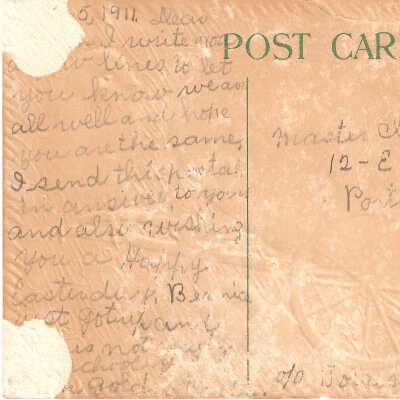 5, 1911. Dear
I write you
lines to let
you know we are
all well and hope
you are the same,
I send this postal
in answer to your
and also wishing
you a Happy
Easterday, Bernia
just got up and
is not
school
POST CAR
Master
12-E
Port
c/o